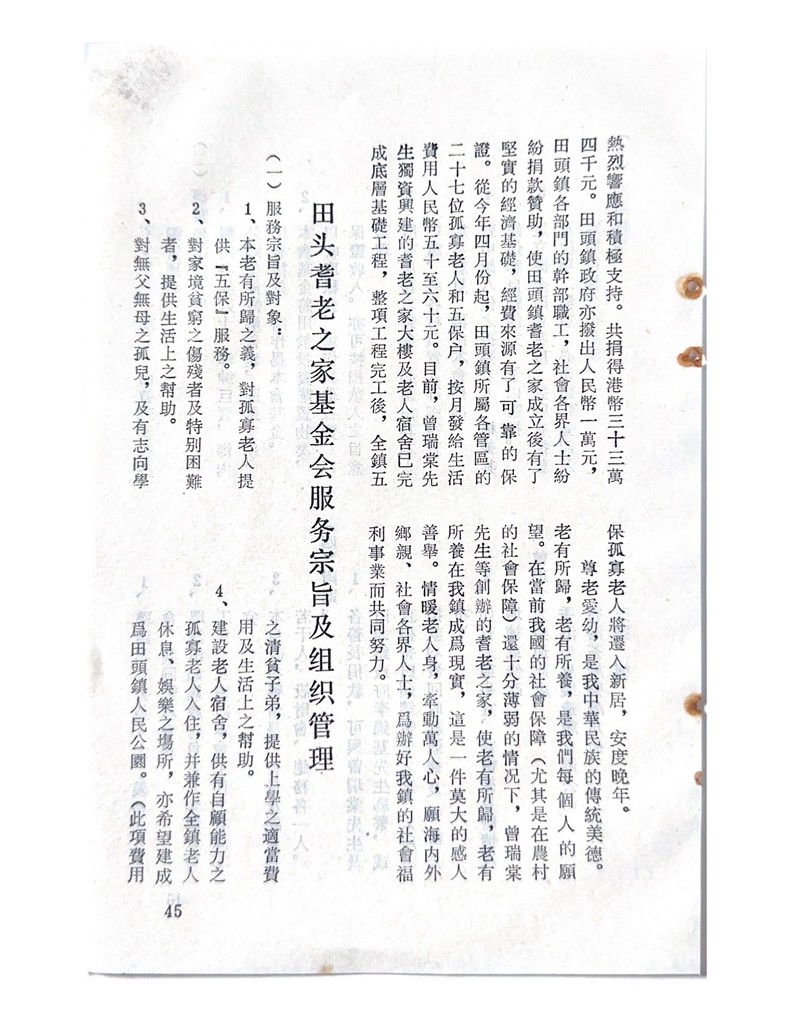 熱烈響應和積極支持。共捐得港幣三十三萬
四千元。田頭鎮政府亦撥出人民幣一萬元，
田頭鎮各部門的幹部職工，社會各界人士紛
紛捐款贊助，使田頭鎮耆老之家成立後有了
堅實的經濟基礎，經費來源有了可靠的保
證。從今年四月份起，田頭鎮所屬各管區的
二十七位孤寡老人和五保户，按月發給生活
費用人民幣五十至六十元。目前，曾瑞棠先
生獨資興建的耆老之家大樓及老人宿舍已完
成底層基礎工程，整項工程完工後，全鎮五
保孤寡老人將遷入新居，安度晚年。
尊老愛幼，是我中華民族的傳統美德。
老有所歸，老有所養，是我們每個人的願
望。在當前我國的社會保障（尤其是在農村
的社會保障）還十分薄弱的情况下，曾瑞棠
先生等創辦的耆老之家，使老有所歸，老有
所養在我鎮成爲現實，這是一件莫大的感人
善舉。情暖老人身，牽動萬人心，願海内外
鄉親、社會各界人士，爲辦好我鎮的社會福
利事業而共同努力。
田头耆老之家基金会服务宗旨及组织管理
（一）服務宗旨及對象：
1、本老有所歸之義，對孤寡老人提
供『五保』服務。
2、對家境貧窮之傷殘者及特别困難
者，提供生活上之幫助。
3、對無父無母之孤兒，及有志向學
之清貧子弟，提供上學之適當費
用及生活上之幫助。
4、建設老人宿舍，供有自顧能力之
孤寡老人入住，并兼作全鎮老人
休息、娛樂之塲所，亦希望建成
爲田頭鎮人民公園。（此項費用
45